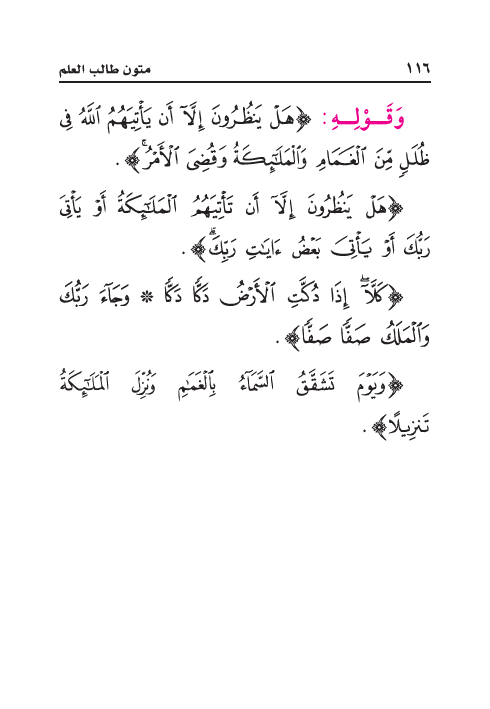 ١١٦ متون طالب العلم
وَقَــوْلِــهِ: ﴿هَلْ يَنظُرُونَ إِلَّآ أَن يَأْتِيَهُمُ ٱللَّهُ فِى
ظُلَلٍ مِّنَ ٱلْغَمَامِ وَٱلْمَلَٰٓئِكَةُ وَقُضِىَ ٱلْأَمْرُ ۚ﴾.
﴿هَلْ يَنظُرُونَ إِلَّآ أَن تَأْتِيَهُمُ ٱلْمَلَٰٓئِكَةُ أَوْ يَأْتِىَ
رَبُّكَ أَوْ يَأْتِىَ بَعْضُ ءَايَٰتِ رَبِّكَ ۗ﴾.
﴿كَلَّآ ۖ إِذَا دُكَّتِ ٱلْأَرْضُ دَكًّا دَكًّا * وَجَآءَ رَبُّكَ
وَٱلْمَلَكُ صَفًّا صَفًّا﴾.
﴿وَيَوْمَ تَشَقَّقُ ٱلسَّمَآءُ بِٱلْغَمَٰمِ وَنُزِّلَ ٱلْمَلَٰٓئِكَةُ
تَنزِيلًا﴾.